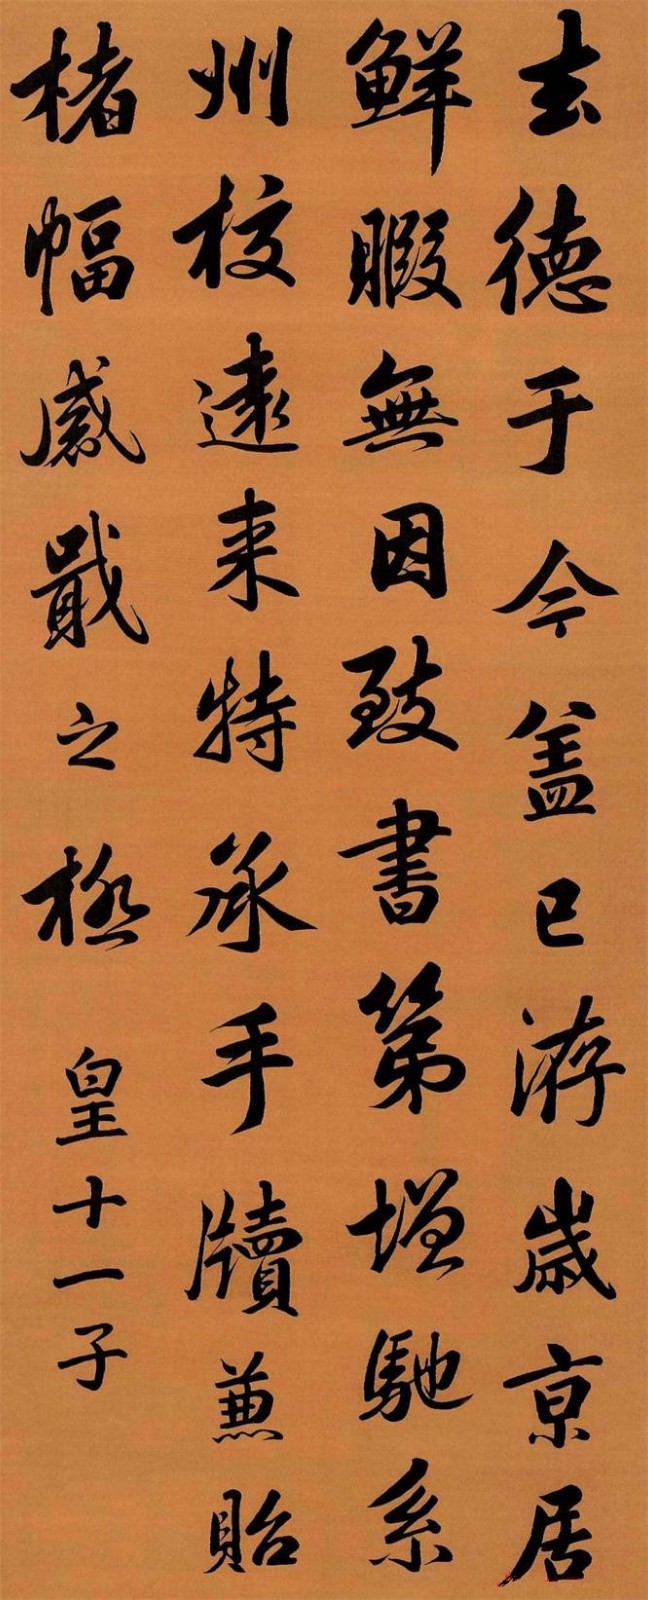 去德于今盖已洊歲京居
鮮暇無因致書第增馳系
州校遠来特承手牘兼貽
楮幅感戢之極
皇十一子